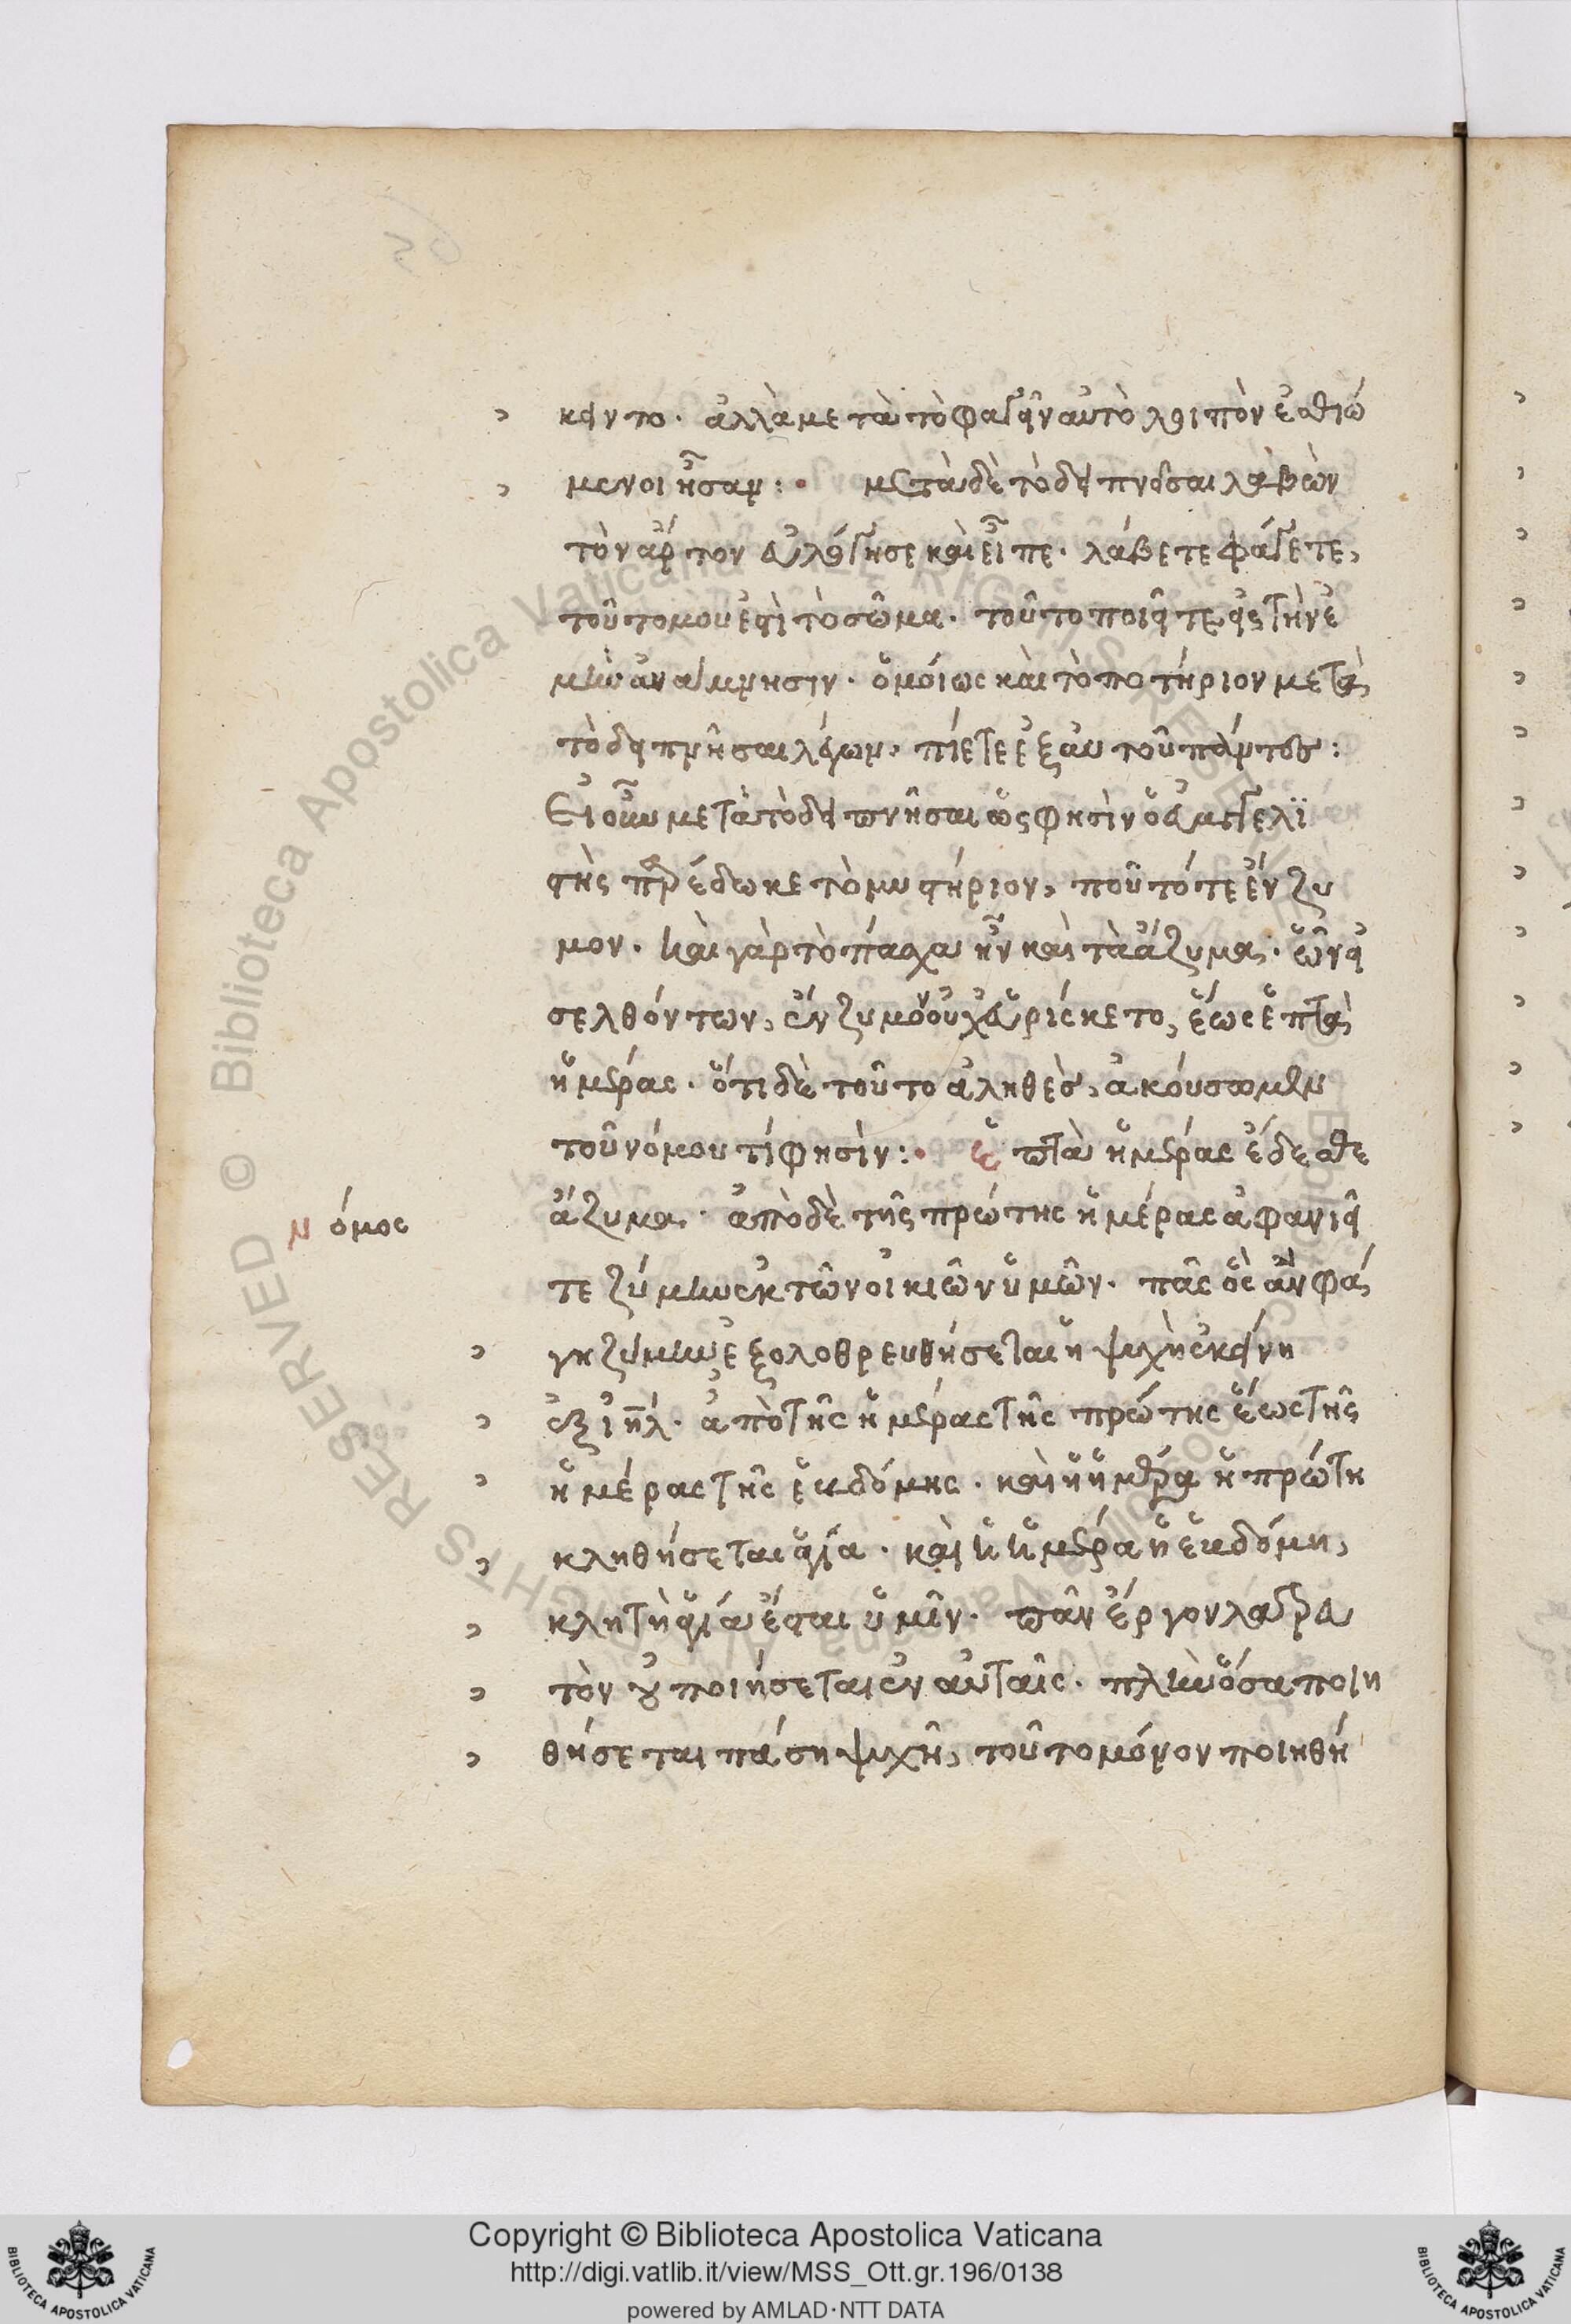 κειντο. ἀλλὰ μετὰ τὸ φαγεῖν αὐτὸ λοιπὸν ἐσθιό
μενοι ἦσαν: μετὰ δὲ τὸ δειπνῆσαι λαβὼν
τὸν ἄρτον εὐλόγησε καὶ εἶπε. λάβετε φάγετε,
τοῦτο μου ἐστὶ τὸ σῶμα. τοῦτο ποιεῖτε εἰς τὴν ἐ
μὴν ἀνάμνησιν. ὁμοίως καὶ τὸ ποτήριον μετὰ
τὸ δειπνῆσαι λέγων. πίετε ἐξ αὐτοῦ πάντες:
Εἰ οὖν μετὰ τὸ δειπνῆσαι ὥς φησὶν ὁ εὐαγγελϊ
στὴς παρέδωκε τὸ μυστήριον, ποῦ τότε ἔνζυ
μον. καὶ γὰρ τὸ πάσχα ἦν καὶ τὰ ἄζυμα. ὧν εἰ
σελθόντων, ἔνζυμον οὐχ εὑρίσκετο, ἕως ἑπτὰ
ἡμέρας. ὅτι δὲ τοῦτο ἀληθὲς, ἀκούσωμεν
τοῦ νόμου τί φησὶν: ἑπτὰ ἡμέρας ἔδεσθε
νόμος
ἄζυμα. ἀπὸ δὲ τῆς πρώτης ἡμέρας ἀφανιεῖ
τε ζύμην ἐκ τῶν οἰκιῶν ὑμῶν. πᾶς ὃς ἂν φά
γη ζύμην ἐξολοθρευθήσεται ἡ ψυχὴ ἐκείνη
ἐξ ιηλ. ἀπὸ τῆς ἡμέρας τῆς πρώτης ἕως τῆς
ἡμέρας τῆς ἑβδόμης. καὶ ἡ ἡμέρα ἡ πρώτη
κληθήσεται ἁγία. καὶ ἡ ἡμέρα ἡ ἑβδόμη,
κλητὴ ἁγία ἔσται ὑμῖν. πᾶν ἔργον λατρευ
τὸν οὐ ποιήσεται ἐν αὐταῖς. πλὴν ὅσα ποιη
θήσεται πάση ψυχῆ, τοῦτο μόνον ποιηθή
Copyright © Biblioteca Apostolica Vaticana
http://digi.vatlib.it/view/MSS_Ott.gr.196/0138
powered by AMLAD·NTT DATA